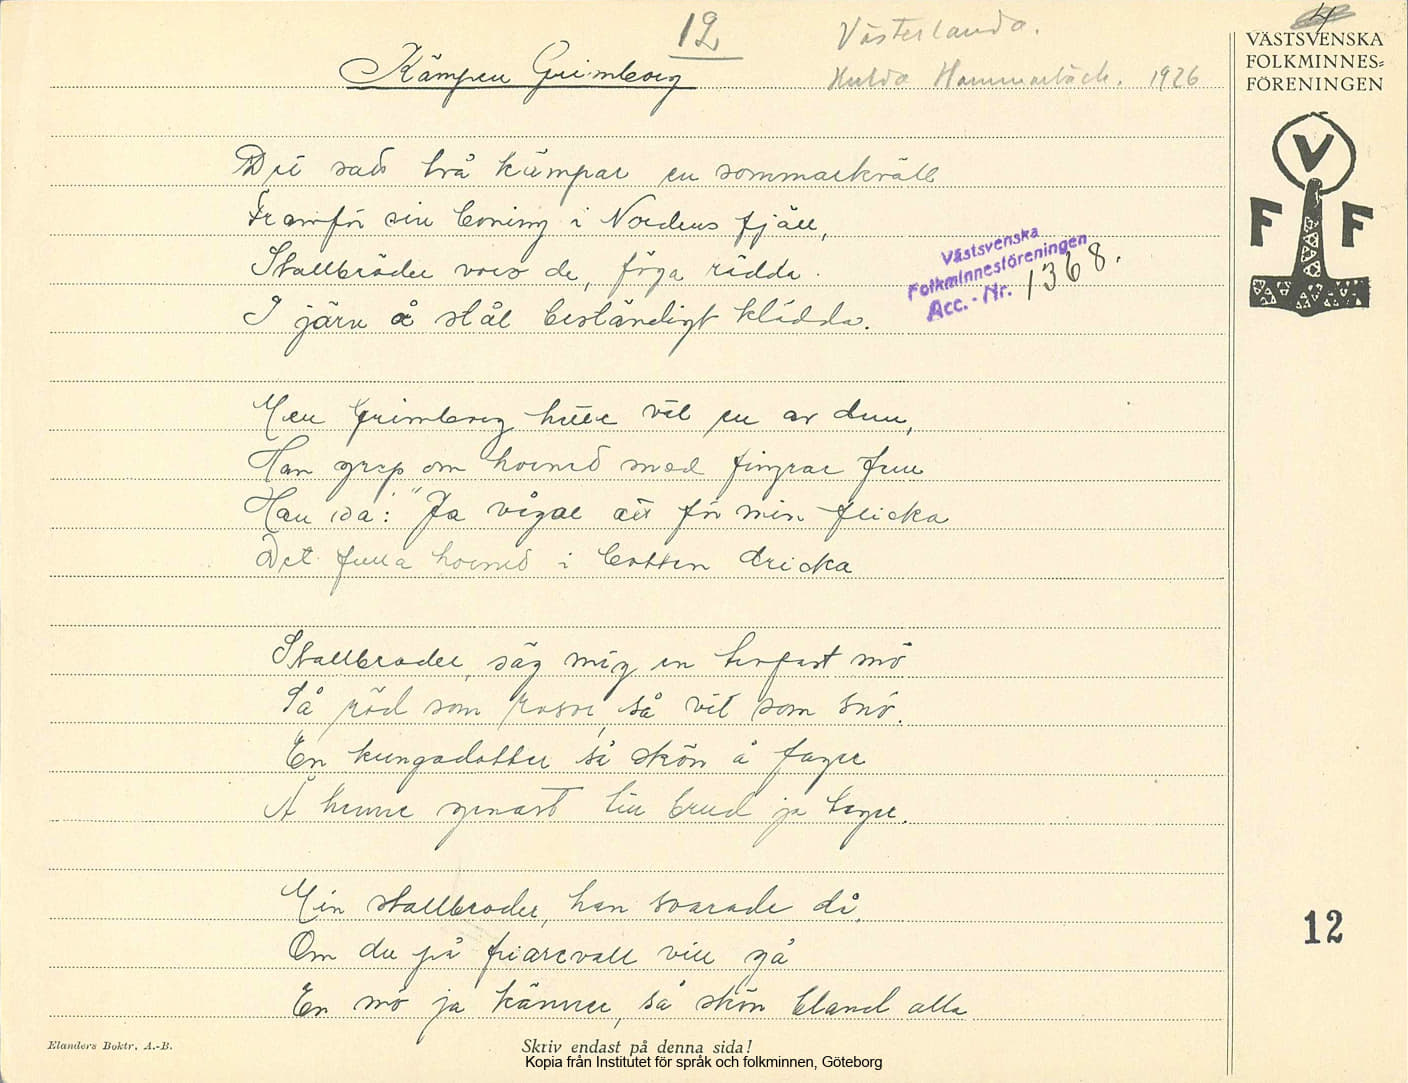 12
Västerlanda.
4
Kämpen Grimborg
Hulda Hammarbäck. 1926
VÄSTSVENSKA
FOLKMINNES=
FÖRENINGEN
V
F F
Det satt två kämpar en sommarkväll
Framför sin boning i Nordens fjäll,
Stallbröder voro de, föga rädda.
I järn å stål beständigt klädda.
Västsvenska
Folkminnesföreningen
Acc.-Nr. 1368.
Men Grimborg hette väl en av dem,
Han grep om hornet med fingrar fem
Han sa: "Ja vågar att för min flicka
Det fulla hornet i botten dricka
Stallbroder, säg mig en mö
Så röd som rosor, så vit som snö.
En kungadotter så skön å fager
Å henne genast till brud ja tager.
Min stallbroder, han svarade då,
Om du på friarevall vill gå
En mö ja känner, så skön bland alla
12
Elanders Boktr. A.-B.
Skriv endast på denna sida!
Kopia från Institutet för språk och folkminnen, Göteborg